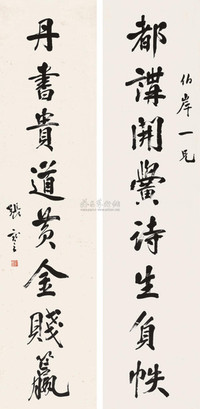 伯岸一兄
都講開黌诗生負帙
丹書貴道黄金賤籯
張謇